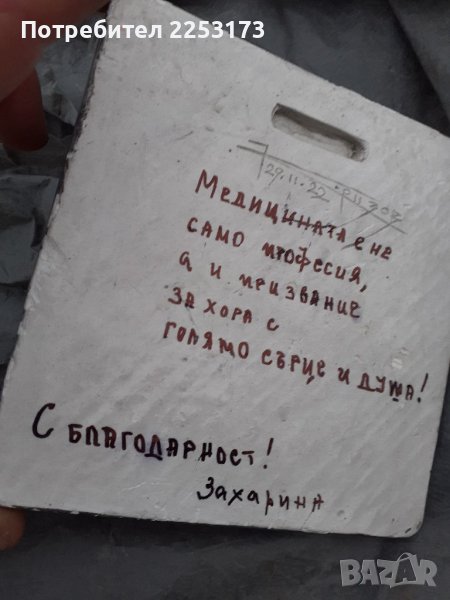 Потребител 2253173
29.11.22
Медицината е не
само професия,
а и призвание
за хора с
голямо сърце и душа!
С благодарност!
Захарина
BAZAR